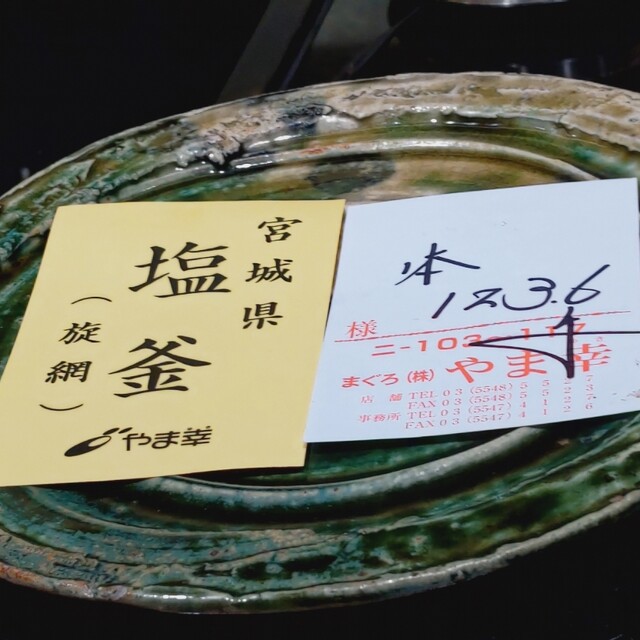 宮城県
塩釜
（旋網）
やま幸
本
183.6
様
ニ-103-1
まぐろ（株）やま幸
店舗 TEL 03(5548)
FAX 03(5548)
事務所 TEL 03(5547)4126
FAX 03(5547)